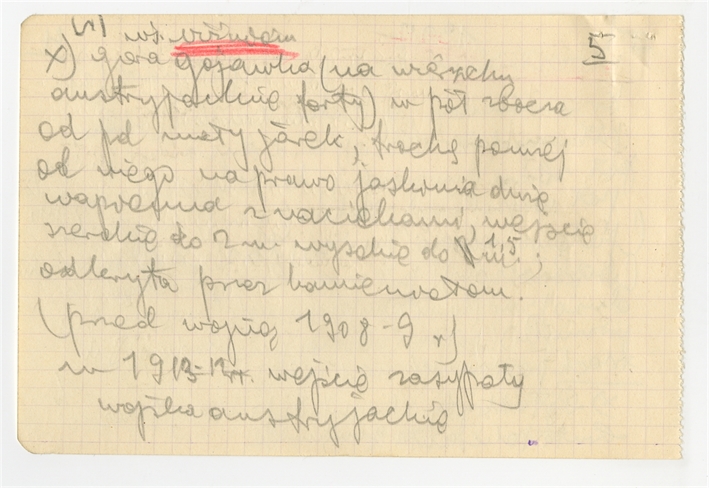 5
wś. Wiśnicz
x) góra Gojawka (na wierzchu
austryjackie forty) w pół zbocza
od pd mały jarek, trochę powyżej
od niego na prawo jaskinia duża
wapienna z naciekami, wejście
szerokie do 2 m. wysokie do 1,5 m.;
odkryta przez kamieniołom.
(przed wojną 1908-9 x)
w 1913-14 wejście zasypały
wojska austryjackie